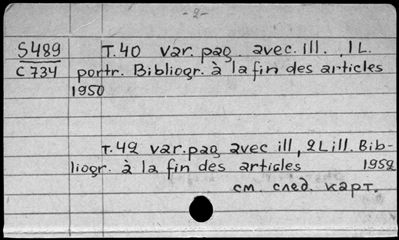 - 2 -
S489 T.40 var. pag. avec. ill. , 1 L.
C734 portr. Bibliogr. à la fin des articles
1950
T.42 var. pag avec ill, 2L ill. Bib-
liogr. à la fin des articles 1952
см. след. карт.